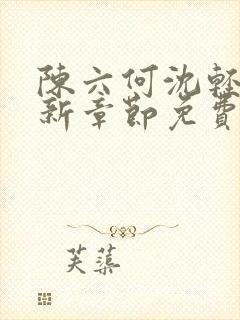 陳六何沈輕
新章節免費
芙蕖